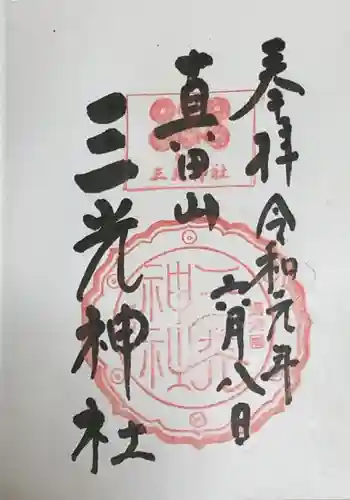 奉拝
令和元年
六月八日
真田山
三光神社
三光神社